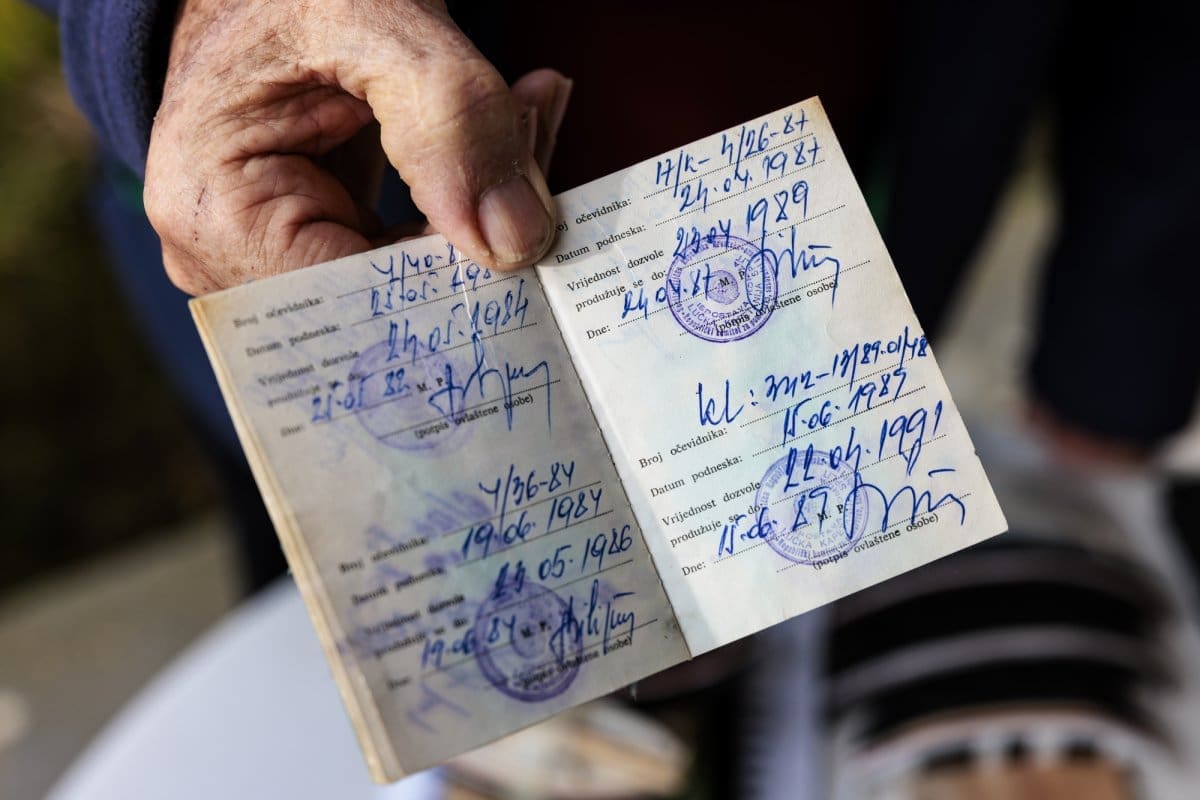 Broj očevidnika: 4/40-
Datum podneska: 25.05. 198
Vrijednost dozvole 24.05.1984
produžuje se do:
Dne: 25.05 82 M. P.
(potpis ovlaštene osobe)
Broj očevidnika: 4/36-84
Datum podneska: 19.06.1984
Vrijednost dozvole 23.05.1986
produžuje se do:
Dne: 19.06.84 M. P.
(potpis ovlaštene osobe)
oj očevidnika: 4/26-87
Datum podneska: 24.04.1987
Vrijednost dozvole 23.04 1989
produžuje se do:
Dne: 24.04.87 M. P.
ISPOSTAVA
LUČKA
(potpis ovlaštene osobe)
Broj očevidnika: kl: 342-13/89-01/48
Datum podneska: 15.06.1989
Vrijednost dozvole 22.04.1991
produžuje se do:
Dne: 15.06.89 M. P.
LUČKA
(potpis ovlaštene osobe)